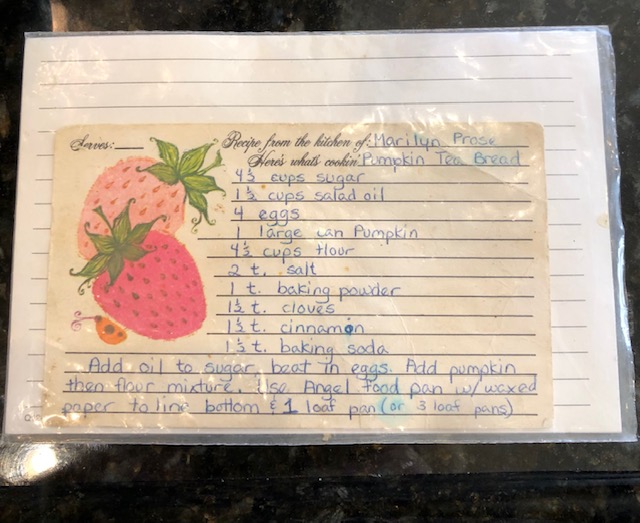 Serves: Recipe from the kitchen of: Marilyn Prose
Here's what's cookin' Pumpkin Tea Bread
4½ cups sugar
1½ cups salad oil
4 eggs
1 large can Pumpkin
4½ cups flour
2 t. salt
1 t. baking powder
1½ t. cloves
1½ t. cinnamon
1½ t. baking soda
Add oil to sugar, beat in eggs. Add pumpkin
then flour mixture. Use Angel food pan w/ waxed
paper to line bottom & 1 loaf pan (or 3 loaf pans)